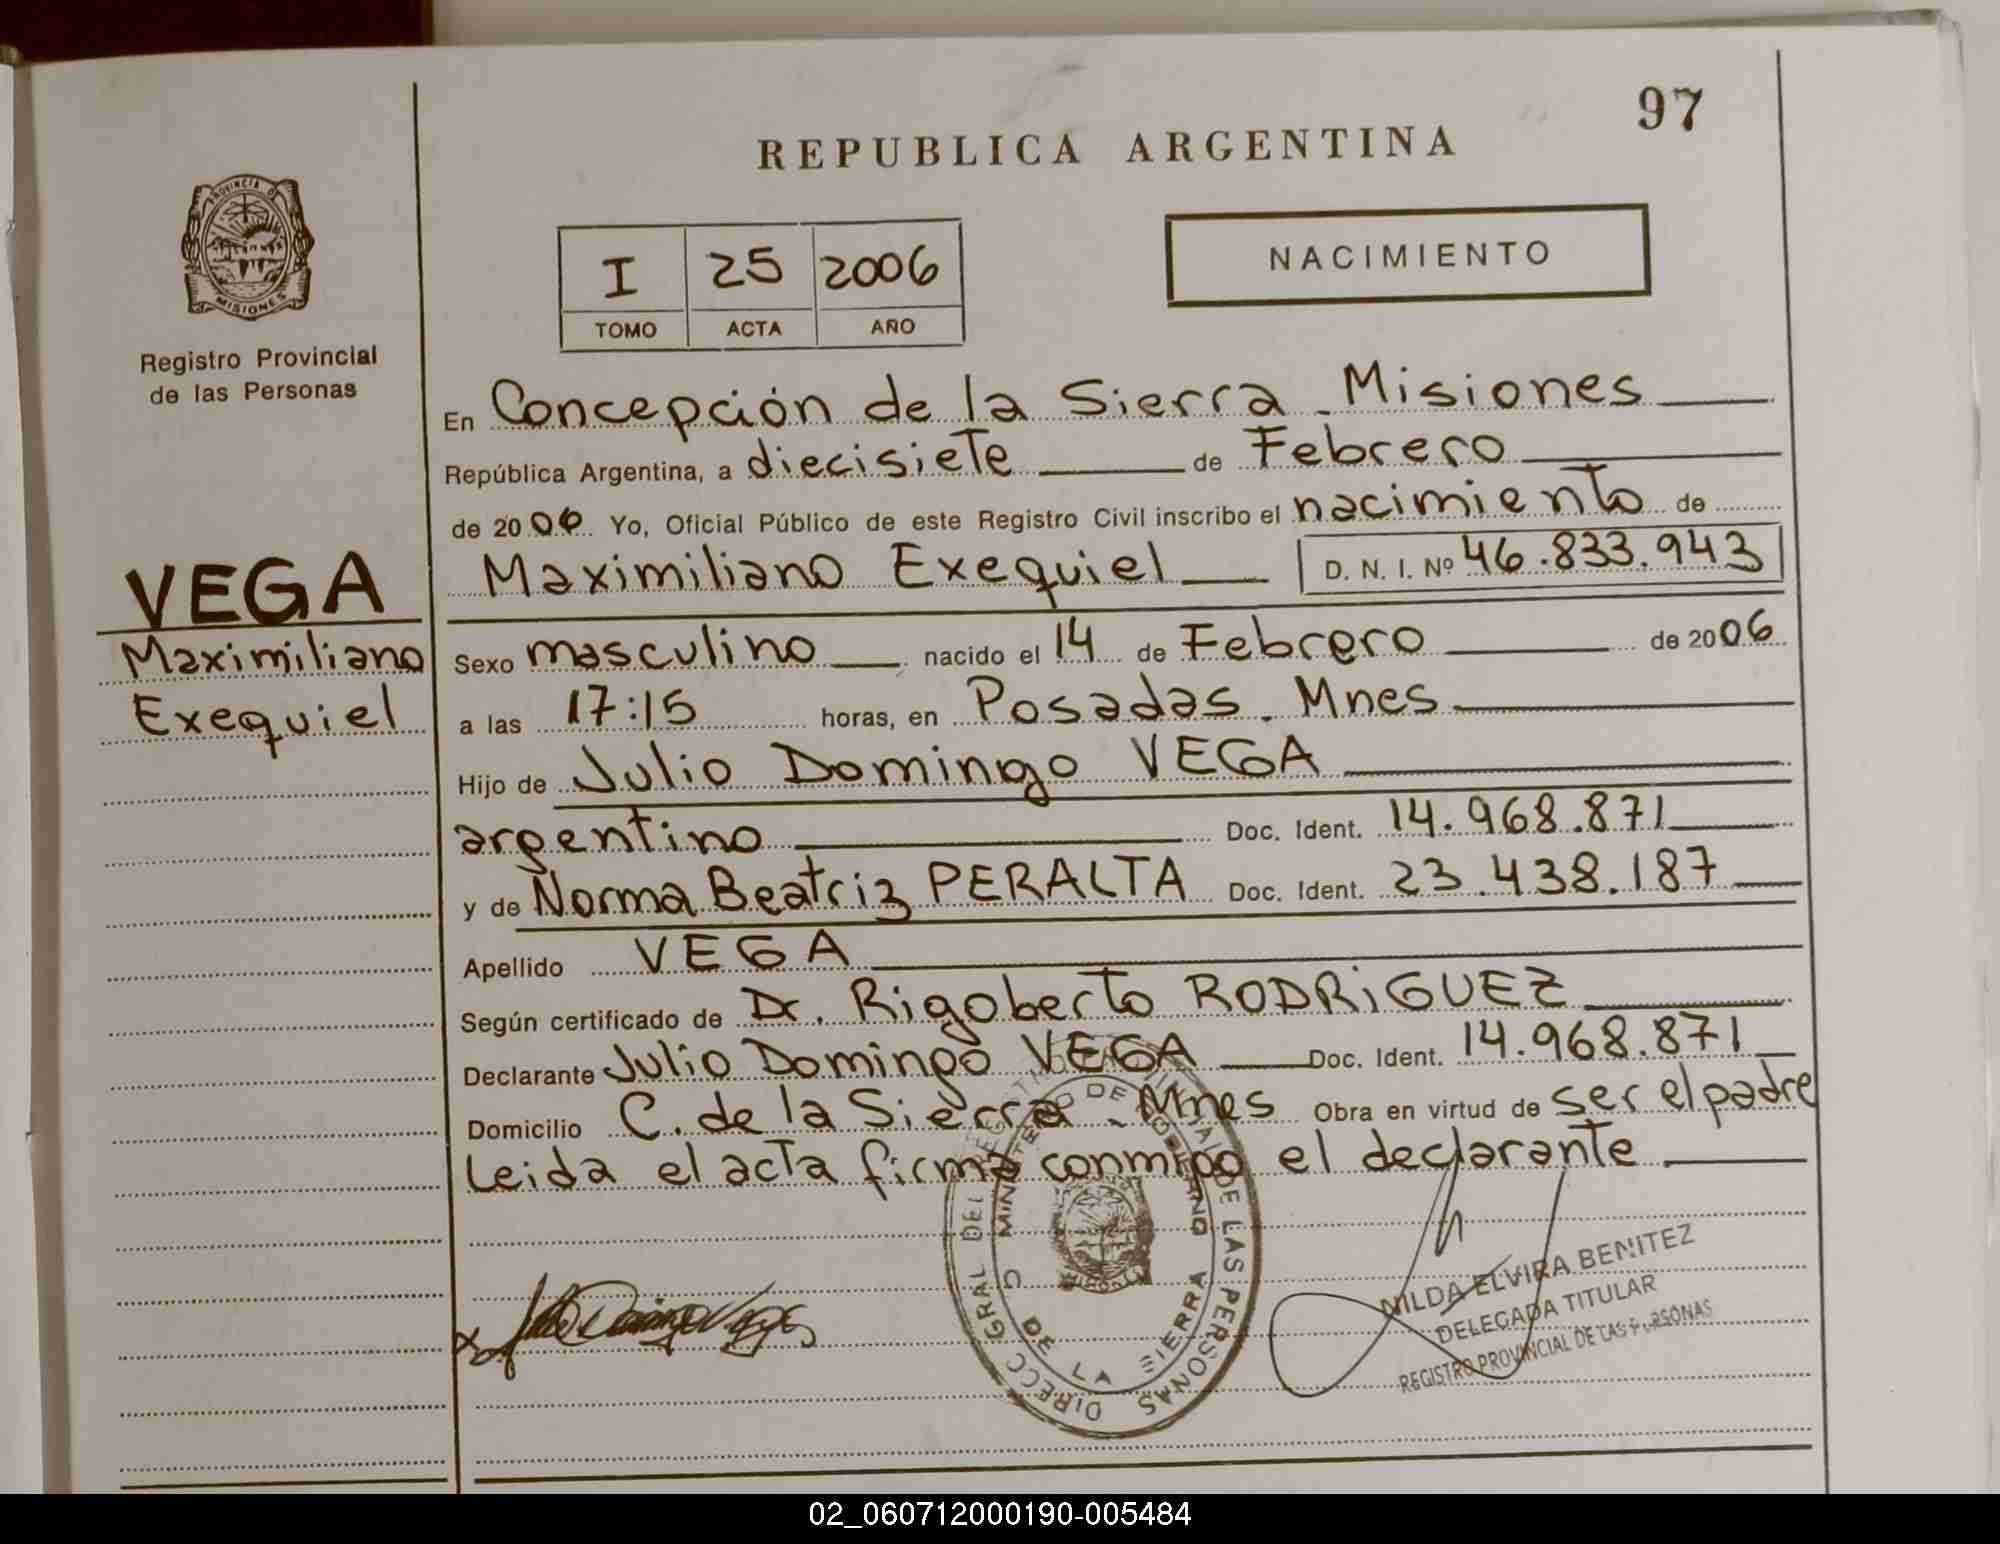 97
REPUBLICA ARGENTINA
PROVINCIA D
MISIONES
Registro Provincial
de las Personas
I 25 2006
TOMO ACTA AÑO
NACIMIENTO
En Concepción de la Sierra - Misiones
República Argentina, a diecisiete de Febrero
de 2006 Yo, Oficial Público de este Registro Civil inscribo el nacimiento de
Maximiliano Exequiel D. N. I. Nº 46.833.943
VEGA
Maximiliano
Exequiel
Sexo masculino nacido el 14 de Febrero de 2006
a las 17:15 horas, en Posadas - Mnes
Hijo de Julio Domingo VEGA
argentino Doc. Ident. 14.968.871
y de Norma Beatriz PERALTA Doc. Ident. 23.438.187
Apellido VEGA
Según certificado de Dr. Rigoberto RODRiGUEZ
Declarante Julio Domingo VEGA Doc. Ident. 14.968.871
Domicilio C. de la Sierra - Mnes Obra en virtud de ser el padre
Leida el acta firma conmigo el declarante
DIRECC GRAL DEL DE LAS PERSONAS
MINISTERIO DE GOBIERNO
C DE LA SIERRA
NILDA ELVIRA BENITEZ
DELEGADA TITULAR
REGISTRO PROVINCIAL DE LAS PERSONAS
02_060712000190-005484